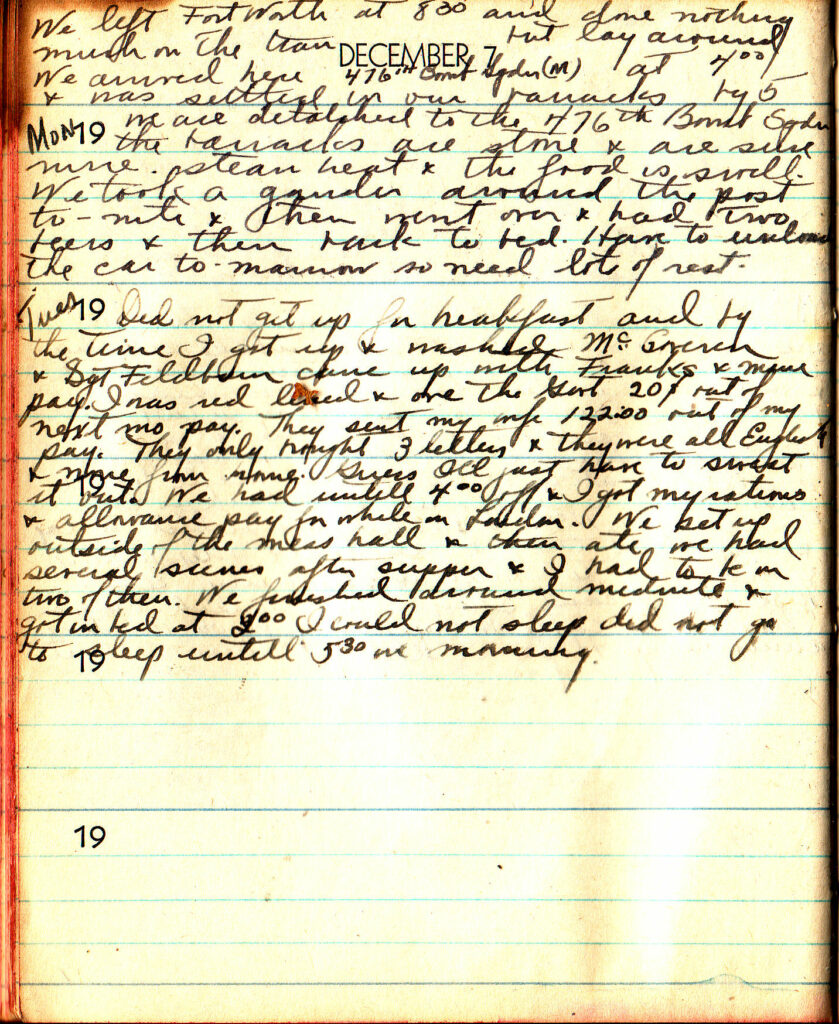 We left Fort Worth at 8 30 and done nothing
much on the train but lay around
DECEMBER 7
We arrived here 476th Bomb Sqdn (M) at 4 00
& was settled in our barracks by 5
Mon 19 we are detatched to the 476th Bomb Sqdn
the barracks are stone & are sure
nice. steam heat & the food is swell.
We took a gander around the post
to-nite & then went over & had two
beers & then back to bed. Have to unload
the car to-morrow so need lots of rest.
Tues 19 Did not get up for breakfast and by
the time I got up & washed McGovern
& Sgt Feldbum came up with Franks & mine
pay. I was red lined & owe the Govt 20¢ out of
next mo pay. They sent my wife 122.00 out of my
pay. They only brought 3 letters & they were all English
& none from mone. Guess Ill just have to sweat
19
it out. We had untill 4 00 off & I got my rations
& allowance pay for while in London. We set up
outside of the mess hall & then ate we had
several scenes after supper & I had to be in
two of them. We finished around midnite &
got in bed at 2 00 I could not sleep did not go
to sleep untill 5 30 in morning.
19
19